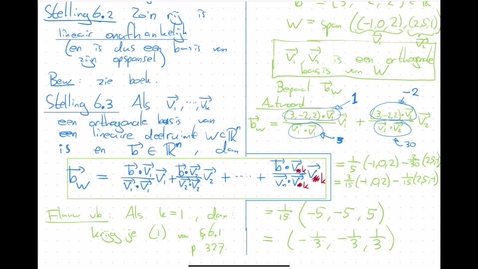 Stelling 6.2 Zo'n rij is
lineair onafhankelijk
(en is dus een basis van
zijn opspansel)
Bew: zie boek.
Stelling 6.3 Als v₁, ..., vₖ
een orthogonale basis van
een lineaire deelruimte W⊂ℝⁿ
is en b ∈ ℝⁿ, dan
b_W = (b•v₁)/(v₁•v₁) v₁ + (b•v₂)/(v₂•v₂) v₂ + ... + (b•vₖ)/(vₖ•vₖ) vₖ
Als k=1, dan
krijg je (1) van §6.1
p 327
W = span ((-1,0,2), (2,5,1))
v₁ v₂
v₁, v₂ is een orthogonale
basis van W
Bepaal b_W
Antwoord: 1 -2
b_W = (3,-2,2)•v₁/(v₁•v₁) v₁ + (3,-2,2)•v₂/(v₂•v₂) v₂
5 30
= 1/5 (-1,0,2) - 2/30 (2,5,1)
= 3/15 (-1,0,2) - 1/15 (2,5,1)
= 1/15 (-5,-5,5)
= (-1/3, -1/3, 1/3)